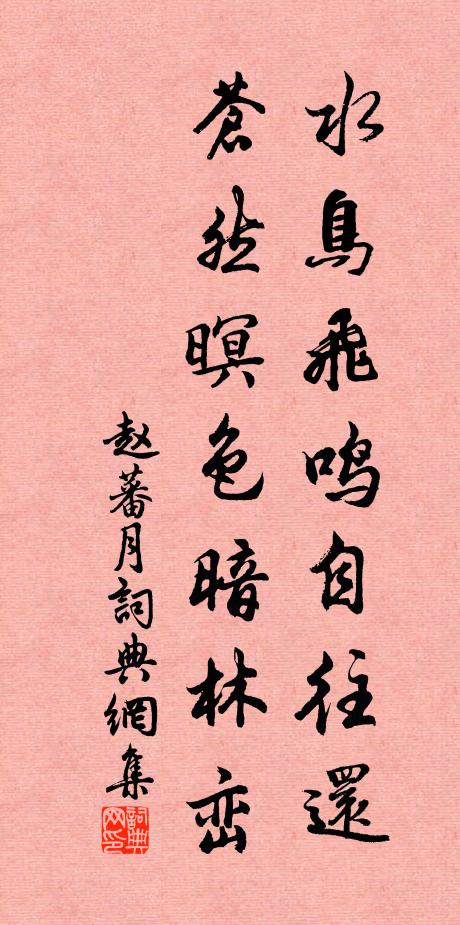 水鳥飛鸣自往還
蒼然暝色暗林峦
赵蕃月詞典網集
詞典网印